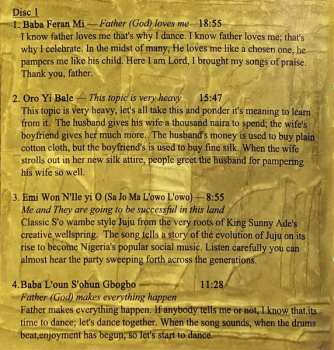 Disc 1
1. Baba Feran Mi — Father (God) loves me 18:55
I know father loves me that's why I dance. I know father loves me; that's
why I celebrate. In the midst of many, He loves me like a chosen one, he
pampers me like his child. Here I am Lord, I brought my songs of praise.
Thank you, father.
2. Oro Yi Bale — This topic is very heavy 15:47
This topic is very heavy, let's all take this and ponder it's meaning to learn
from it. The husband gives his wife a thousand naira to spend; the wife's
boyfriend gives her much more. The husband's money is used to buy plain
cotton cloth, but the boyfriend's is used to buy fine silk. When the wife
strolls out in her new silk attire, people greet the husband for pampering
his wife so well.
3. Emi Won N'Ile yi O (Sa Jo Ma L'owo L'owo) – 8:55
Me and They are going to be successful in this land
Classic S'o wambe style Juju from the very roots of King Sunny Ade's
creative wellspring. The song tells a story of the evolution of Juju on its
rise to become Nigeria's popular social music. Listen carefully you can
almost hear the party sweeping forth across the generations.
4. Baba L'oun S'ohun Gbogbo 11:28
Father (God) makes everything happen
Father makes everything happen. If anybody tells me or not, I know that,its
time to dance; let's dance together. When the song sounds, when the drums
beat,enjoyment has begun, so let's start to dance.